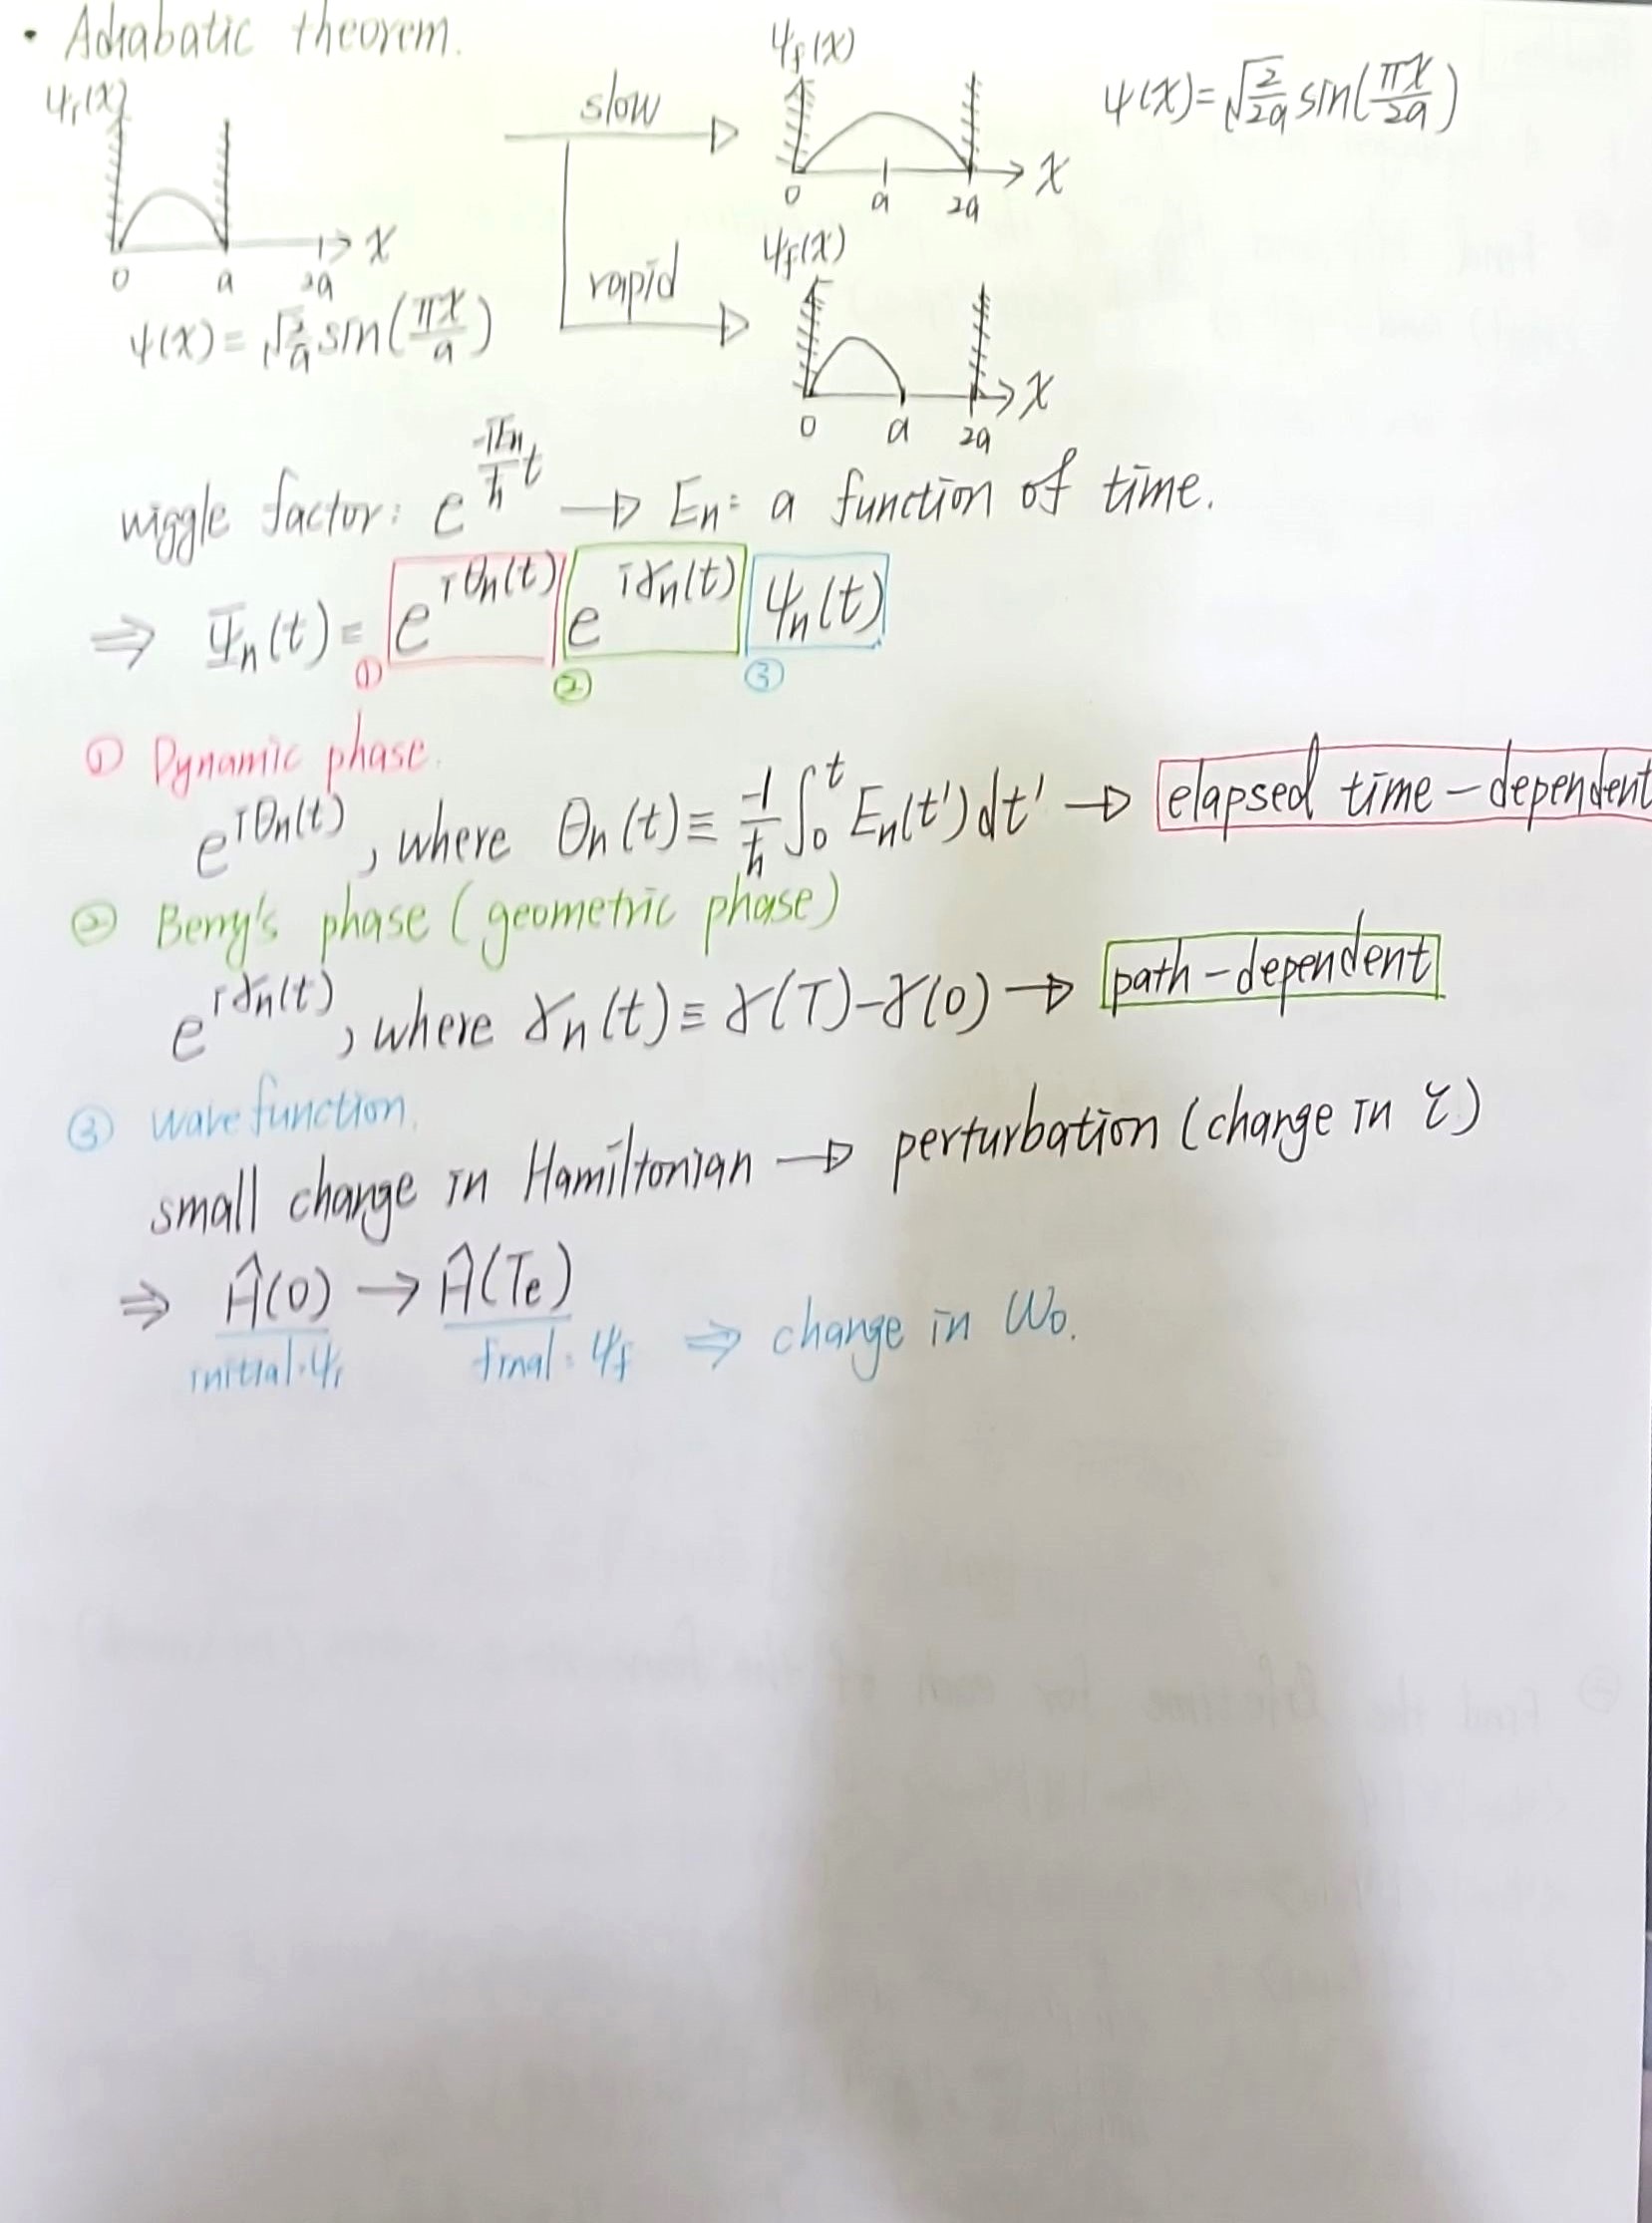 • Adiabatic theorem.
ψᵢ(x)
0 a 2a x
ψ(x)=√(2/a) sin(πx/a)
slow
ψf(x)
0 a 2a x
ψ(x)=√(2/2a) sin(πx/2a)
rapid
ψf(x)
0 a 2a x
wiggle factor: e^(-iEn/ħ t) → En = a function of time.
⇒ Ψn(t) = e^(iθn(t)) e^(iγn(t)) ψn(t)
① ② ③
① Dynamic phase.
e^(iθn(t)), where θn(t) ≡ -1/ħ ∫₀ᵗ En(t')dt' → elapsed time-dependent
② Berry's phase (geometric phase)
e^(iγn(t)), where γn(t) ≡ γ(T)-γ(0) → path-dependent
③ wavefunction.
small change in Hamiltonian → perturbation (change in τ)
⇒ Ĥ(0) → Ĥ(Te)
initial: ψᵢ final: ψf ⇒ change in ω₀.